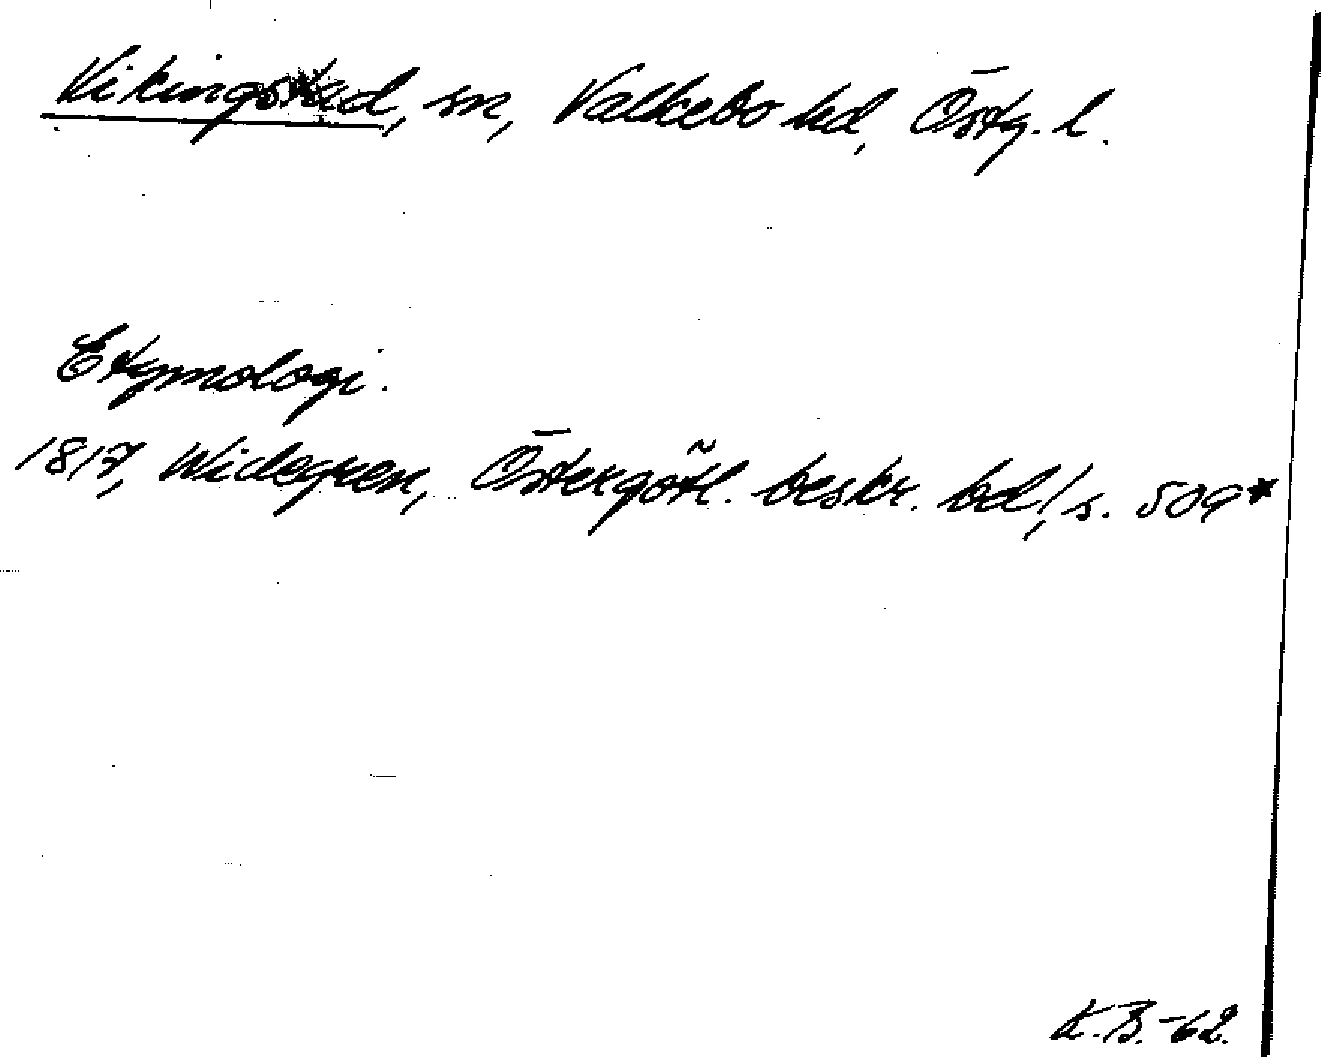 Vikingstad, sn, Valkebo hd, Östg. l.
Etymologi.
1817, Widegren, Östergötl. beskr. bd 1, s. 509*
K.B.-62.